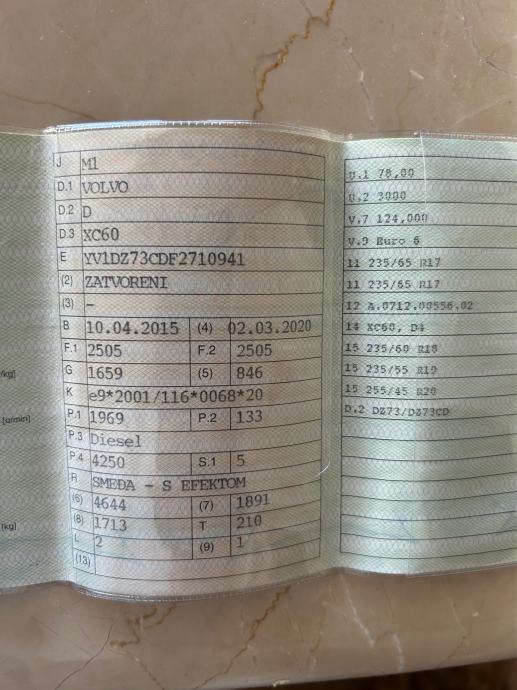 J M1
D.1 VOLVO
D.2 D
D.3 XC60
E YV1DZ73CDF2710941
(2) ZATVORENI
(3) -
B 10.04.2015 (4) 02.03.2020
F.1 2505 F.2 2505
G 1659 (5) 846
K e9*2001/116*0068*20
P.1 1969 P.2 133
P.3 Diesel
P.4 4250 S.1 5
R SMEĐA - S EFEKTOM
(6) 4644 (7) 1891
(8) 1713 T 210
L 2 (9) 1
(13)
/kg]
[o/min]
[kg]
U.1 78,00
U.2 3000
V.7 124,000
V.9 Euro 6
11 235/65 R17
11 235/65 R17
12 A.0712.00556.02
14 XC60, D4
15 235/60 R18
15 235/55 R19
15 255/45 R20
D.2 DZ73/DZ73CD